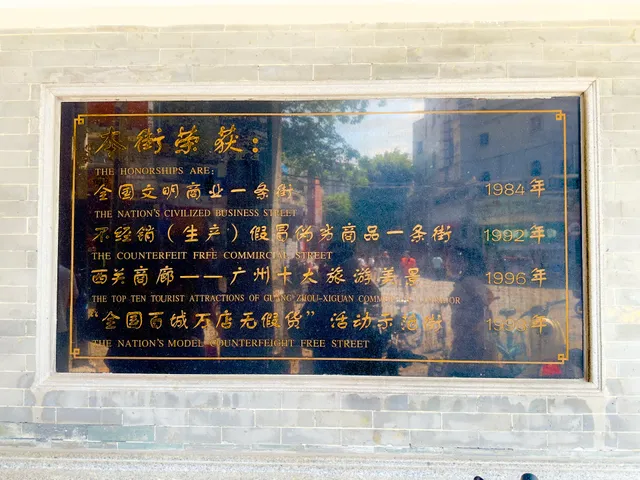 本街荣获：
THE HONORSHIPS ARE:
全国文明商业一条街 1984年
THE NATION'S CIVILIZED BUSINESS STREET
不经销（生产）假冒伪劣商品一条街 1992年
THE COUNTERFEIT FREE COMMIRCIAL STREET
西关商廊——广州十大旅游美景 1996年
THE TOP TEN TOURIST ATTRACTIONS OF GUANG ZHOU-XIGUAN
“全国百城万店无假货”活动示范街 年
THE NATION'S MODEL COUNTERFEIGHT FREE STREET